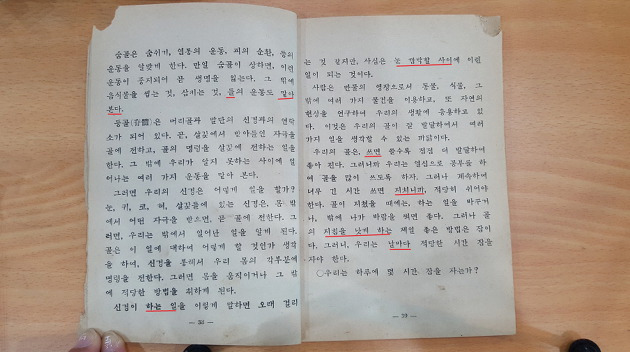 숨골은 숨쉬기, 염통의 운동, 피의 순환, 등의
운동을 알맞게 한다. 만일 숨골이 상하면, 이런
운동이 중지되어 곧 생명을 잃는다. 그 밖에
음식물을 씹는 것, 삼키는 것, 들의 운동도 맡아
본다.
등골(脊髓)은 머리골과 말단의 신경과의 연락
소가 되어 있다. 곧, 살갗에서 받아들인 자극을
골에 전하고, 골의 명령을 살갗에 전하는 일을
한다. 그 밖에 우리가 알지 못하는 사이에 일
어나는 여러 가지 운동을 맡아 본다.
그러면 우리의 신경은 어떻게 일을 할가?
눈, 귀, 코, 혀, 살갗들에 있는 신경은, 몸 밖
에서 어떤 자극을 받으면, 곧 골에 전한다. 그
러면, 우리는 밖에서 일어난 일을 알게 된다.
골은 이 일에 대하여 어떻게 할 것인가 생각
을 하여, 신경을 통해서 우리 몸의 각부분에
명령을 전한다. 그러면 몸을 움직이거나 그 밖
에 적당한 방법을 취하게 된다.
신경이 하는 일을 이렇게 말하면 오래 걸리
— 38 —
는 것 같지만, 사실은 눈 깜작할 사이에 이런
일이 되는 것이다.
사람은 만물의 영장으로서 동물, 식물, 그
밖에 여러 가지 물건을 이용하고, 또 자연의
현상을 연구하여 우리의 생활에 응용하고 있
다. 이것은 우리의 골이 잘 발달하여서 여러
가지 일을 생각할 수 있는 까닭이다.
우리의 골은, 쓰면 쓸수록 점점 더 발달하여
좋아 진다. 그러니까 우리는 열심으로 공부를 하
여 골을 많이 쓰도록 하자. 그러나 계속하여
너무 긴 시간 쓰면 지치니까, 적당히 쉬어야
한다. 골이 지쳤을 때에는, 하는 일을 바꾸거
나, 밖에 나가 바람을 쐬면 좋다. 그러나 골
의 지침을 낫게 하는 제일 좋은 방법은 잠이
다. 그러니, 우리는 날마다 적당한 시간 잠을
자야 한다.
○우리는 하루에 몇 시간 잠을 자는가?
— 39 —